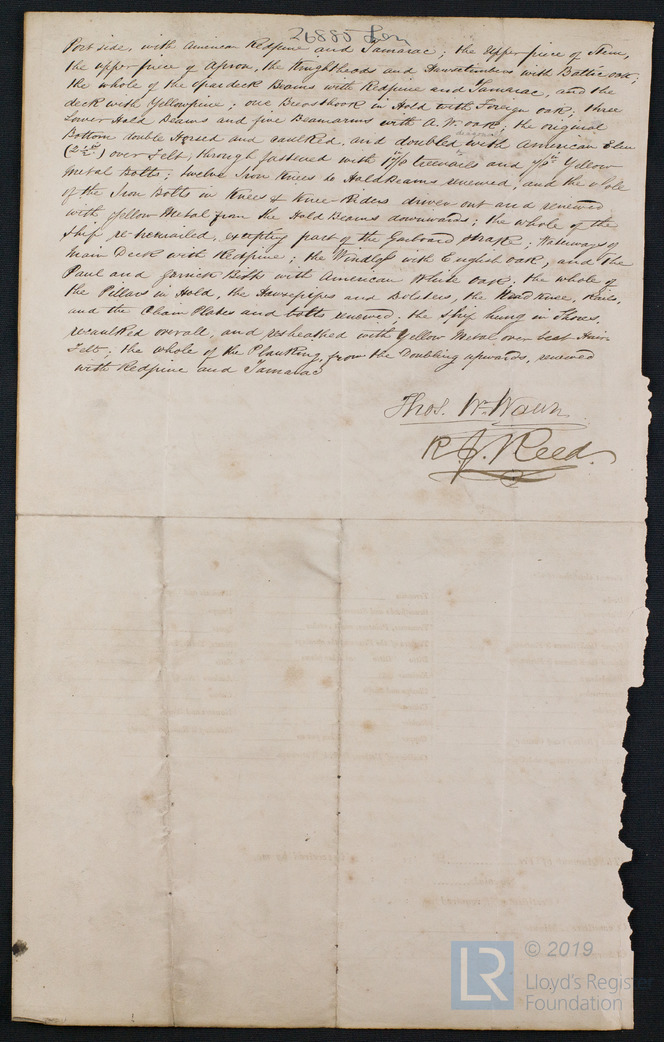 26885 Lon
Port side, with American Redpine and Tamarac; the Upper-piece of Stem,
the upper piece of Apron, the Knightheads and Hawsetimbers with Baltic oak;
the whole of the Spardeck Beams with Redpine and Tamarac, and the
deck with Yellowpine; one Breasthook in Hold with Foreign oak; three
Lower Hold Beams and five Beamarms with A. W. oak; the original
Bottom double Horsed and caulked, and doubled with American Elm
(2½ in) over Felt, through fastened with 1⅛ treenails and Yellow
metal Bolts; twelve Iron Knees to Hold Beams renewed, and the whole
of the Iron Bolts in Knees & Knee-Riders driven out and renewed
with yellow Metal from the Hold Beams downwards; the whole of the
Ship re-treenailed, excepting part of the Garboard Strake; Waterways of
Main Deck with Redpine; the Windlass with English Oak, and the
Paul and Carrick Bitts with American White Oak, the whole of
the Pillars in Hold, the Hawsepipes and Bolsters, the Wood Knee, Rails,
and the Chain Plates and bolts renewed; the Ship hung in Shores,
recaulked overall, and resheathed with Yellow Metal over best Hair
Felt; the whole of the Planking, from the Doubling upwards, renewed
with Redpine and Tamarac
Thos. Wm. Wawn
R. J. Reed.
LR © 2019
Lloyd's Register
Foundation